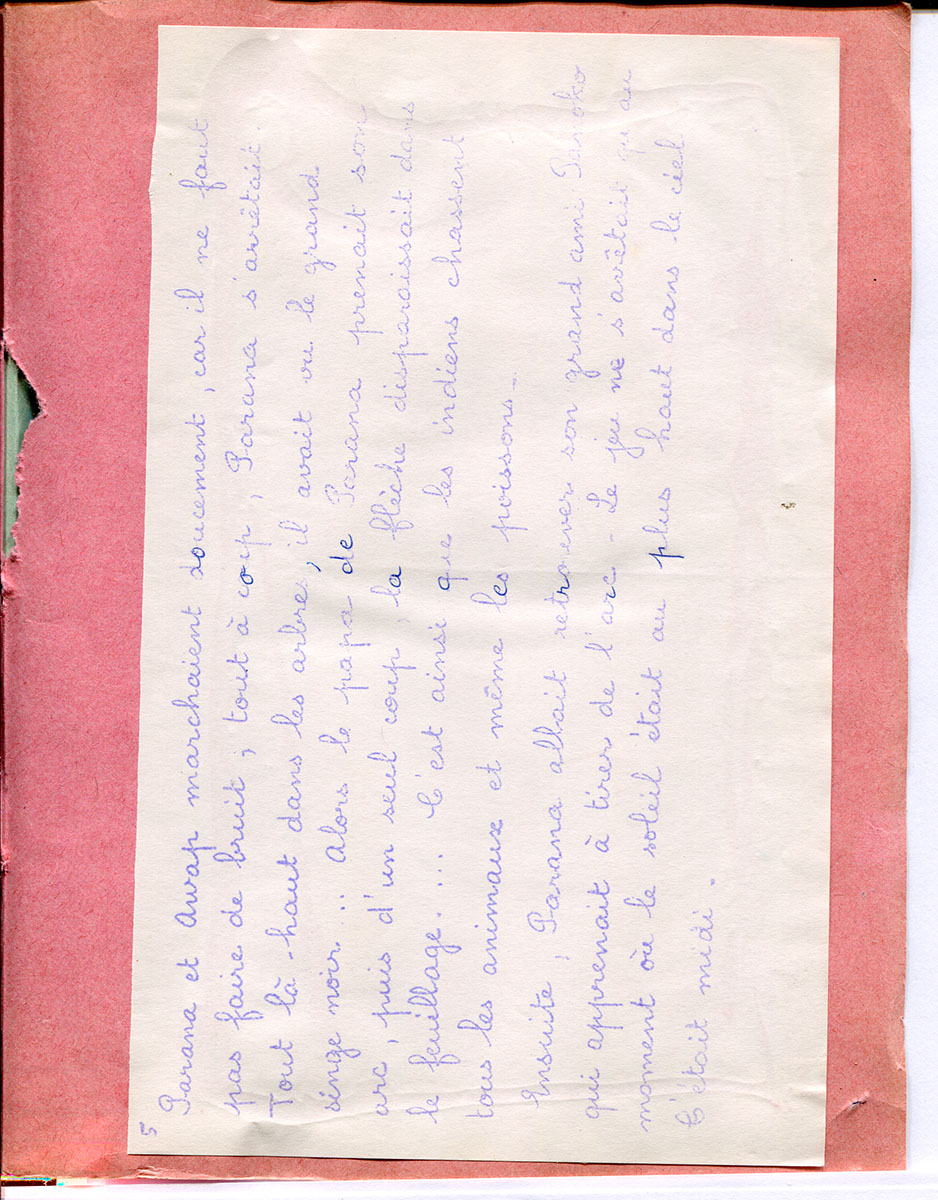 5
Parana et Awap marchaient doucement, car il ne faut
pas faire de bruit, tout à coup, Parana s'arrêtait.
Tout là-haut dans les arbre, il avait vu le grand
singe noir.!! Alors le papa de Parana prenait son
arc, puis d'un seul coup, la flèche disparaissait dans
le feuillage... C'est ainsi que les indiens chassent
tous les animaux et même les poissons_
Ensuite, Parana allait retrouver son grand ami
qui apprenait à tirer de l'arc_ Le jeu ne s'arêtait qu'au
moment où le soleil était au plus haut dans le ciel
C'était midi.